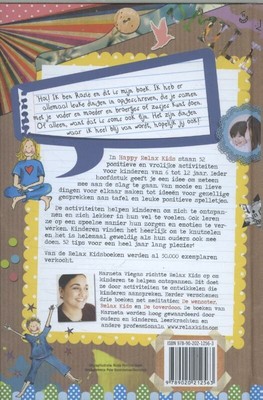 Hoi! Ik ben Marie en dit is mijn boek. Ik heb er
allemaal leuke dingen in opgeschreven, die je samen
met je vader en moeder en broertjes of zusjes kunt doen.
Of alleen, want dat is soms ook fijn. Het zijn dingen
waar ik heel blij van word, hopelijk jij ook!
In Happy Relax Kids staan 52
positieve en vrolijke activiteiten
voor kinderen van 6 tot 12 jaar. Ieder
hoofdstuk geeft je een idee om meteen
mee aan de slag te gaan. Van mooie en lieve
dingen voor elkaar maken tot ideeën voor gezellige
gesprekken aan tafel en leuke positieve spelletjes.
De activiteiten helpen kinderen om zich te ontspan-
nen en zich lekker in hun vel te voelen. Ook leren
ze op een speelse manier hun zorgen en emotie te ver-
werken. Kinderen vinden het heerlijk om te knutselen
en het is helemaal geweldig als hun ouders ook mee
doen. 52 tips voor een heel jaar lang plezier!
Van de Relax Kidsboeken werden al 30.000 exemplaren
verkocht.
Marneta Viegas richtte Relax Kids op om
kinderen te helpen ontspannen. Dit doet
ze door activiteiten te ontwikkelen die
kinderen aanspreken. Eerder verschenen
drie boeken met meditaties: De wensster,
Relax Kids en De toverdoos. De boeken van
Marneta worden hoog gewaardeerd door
ouders en kinderen, leerkrachten en
andere professionals. www.relaxkids.nl
ISBN 978-90-202-1256-3
9789020212563